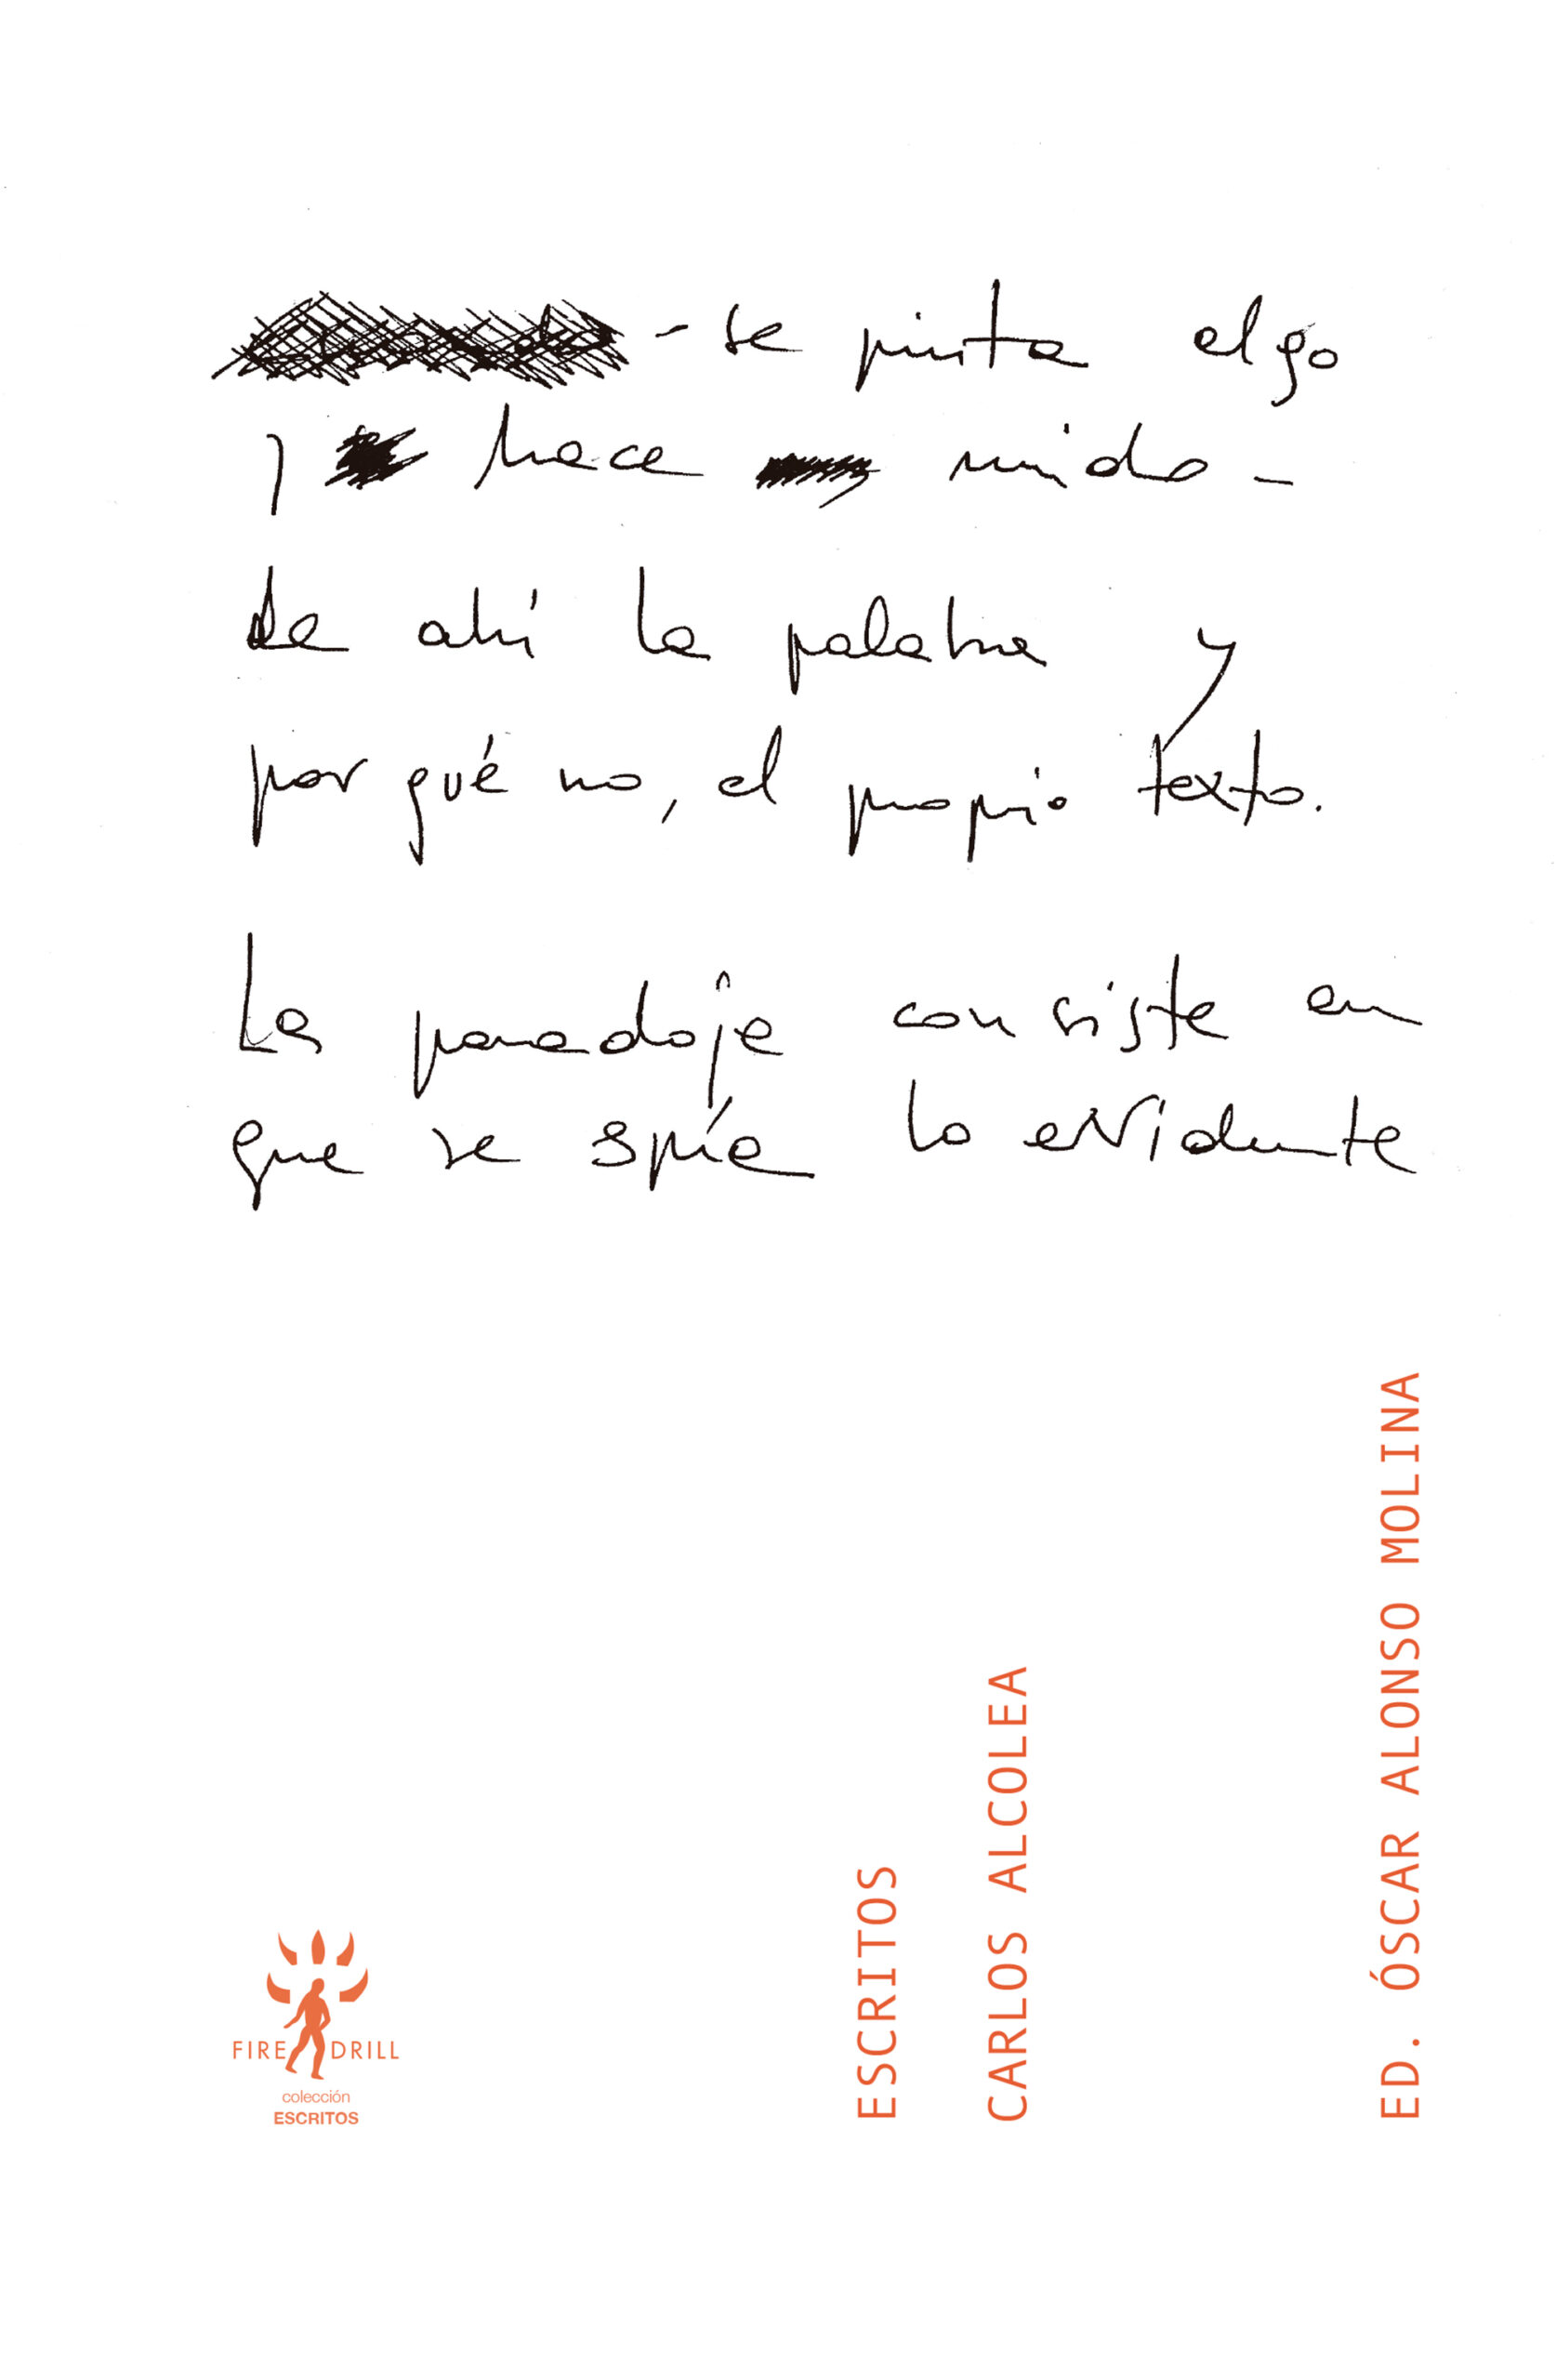 - se pinta algo
y hace ruido -
de ahí la palabra y
por qué no, el propio texto.
La paradoja consiste en
que se espía lo evidente
ESCRITOS
CARLOS ALCOLEA
ED. ÓSCAR ALONSO MOLINA
FIRE DRILL
colección
ESCRITOS